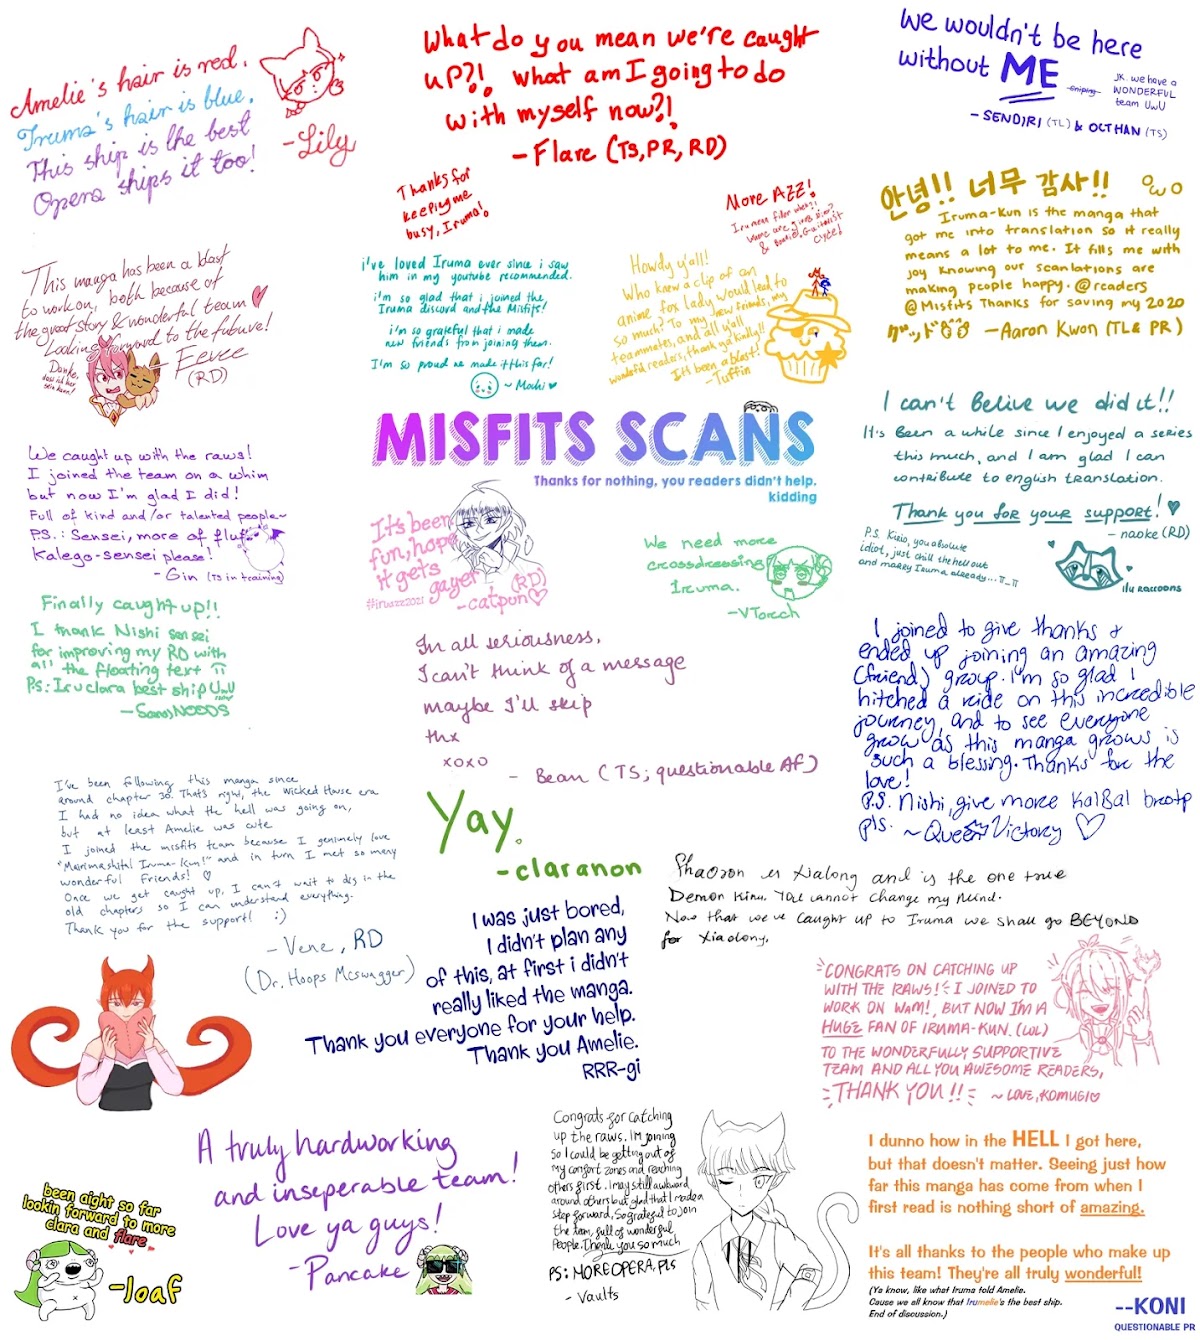 Amelie's hair is red.
Iruma's hair is blue.
This ship is the best
Opera ships it too!
-Lily
What do you mean we're caught
up?!. what am I going to do
with myself now?!
-Flare (TS, PR, RD)
Thanks for
keeping me
busy, Iruma!
More AZZ!
& Barbiel, Guitarist
We wouldn't be here
without ME
JK. we have a
WONDERFUL
team UwU
- SENDIRI (TL) & OCTHAN (TS)
안녕!! 너무 감사!!
Iruma-Kun is the manga that
got me into translation so it really
means a lot to me. It fills me with
joy knowing our scanlations are
making people happy. @readers
@Misfits Thanks for saving my 2020
-Aaron Kwon (TL & PR)
This manga has been a blast
to work on, both because of
the great story & wonderful team
Looking forward to the future!
- Eevee
(RD)
Danke,
dass ihr hier
sein kann!
i've loved Iruma ever since i saw
him in my youtube recommended.
i'm so glad that i joined the
Iruma discord and the Misfits!
i'm so grateful that i made
new friends from joining them.
I'm so proud we made it this far!
~ Mochi ♥
Howdy y'all!
Who knew a clip of an
anime fox lady would lead to
so much? To my new friends, my
teammates, and all y'all
wonderful readers, thank ya kindly!!
It's been a blast!
-Tuffin
I can't Belive we did it!!
It's Been a while since I enjoyed a series
this much, and I am glad I can
contribute to english translation.
Thank you for your support! ♥
- naoke (RD)
P.S. Kirio, you absolute
idiot, just chill the hell out
and marry Iruma already... π_π
ily raccoons
MISFITS SCANS
Thanks for nothing, you readers didn't help.
kidding
We caught up with the raws!
I joined the team on a whim
but now I'm glad I did!
Full of kind and/or talented people~
P.S.: Sensei, more of fluff
Kalego-sensei please!
- Gin (TS in training)
It's been
fun, hope
it gets
gayer
#iruazz2021
(RD)
-catpun♡
We need more
crossdressing
Iruma.
-VTorch
Finally caught up!!
I thank Nishi sensei
for improving my RD with
all the floating text π
P.S: Iruclara best ship UwU
-SansNOODS
In all seriousness,
I can't think of a message
maybe I'll skip
thx
xoxo
- Bean (TS; questionable AF)
I joined to give thanks &
ended up joining an amazing
(friend) group. I'm so glad I
hitched a ride on this incredible
journey, and to see everyone
grow as this manga grows is
such a blessing. Thanks for the
love!
P.S. Nishi, give more KalBal brotp
pls. ~Queen Victory ♡
I've been following this manga since
around chapter 30. That's right, the Wicked House era
I had no idea what the hell was going on,
but at least Amelie was cute
I joined the misfits team because I genuinely love
"Mairimashita! Iruma-kun!" and in turn I met so many
wonderful friends! ♡
Once we get caught up, I can't wait to dig in the
old chapters so I can understand everything.
Thank you for the support! :)
- Vene, RD
(Dr. Hoops McSwagger)
Yay.
-claranon
I was just bored,
I didn't plan any
of this, at first i didn't
really liked the manga.
Thank you everyone for your help.
Thank you Amelie.
RRR-gi
Shaoron is Xialong and is the one true
Demon King. You cannot change my mind.
Now that we've caught up to Iruma we shall go BEYOND
for Xiaolong.
CONGRATS ON CATCHING UP
WITH THE RAWS! I JOINED TO
WORK ON WAM!, BUT NOW I'M A
HUGE FAN OF IRUMA-KUN. (LOL)
TO THE WONDERFULLY SUPPORTIVE
TEAM AND ALL YOU AWESOME READERS,
THANK YOU!!
~ LOVE, KOMUGI♡
A truly hardworking
and inseperable team!
Love ya guys!
-Pancake
been aight so far
lookin forward to more
clara and flare
-loaf
Congrats for catching
up the raws. I'm joining
so I could be getting out of
my comfort zones and reaching
others first. I may still awkward
around others but glad that I made a
step forward, So grateful to join
the team, full of wonderful
people. Thank you so much
PS: MORE OPERA, PLS
- Vaults
I dunno how in the HELL I got here,
but that doesn't matter. Seeing just how
far this manga has come from when I
first read is nothing short of amazing.
It's all thanks to the people who make up
this team! They're all truly wonderful!
(Ya know, like what Iruma told Amelie.
Cause we all know that Irumelie's the best ship.
End of discussion.)
--KONI
QUESTIONABLE PR